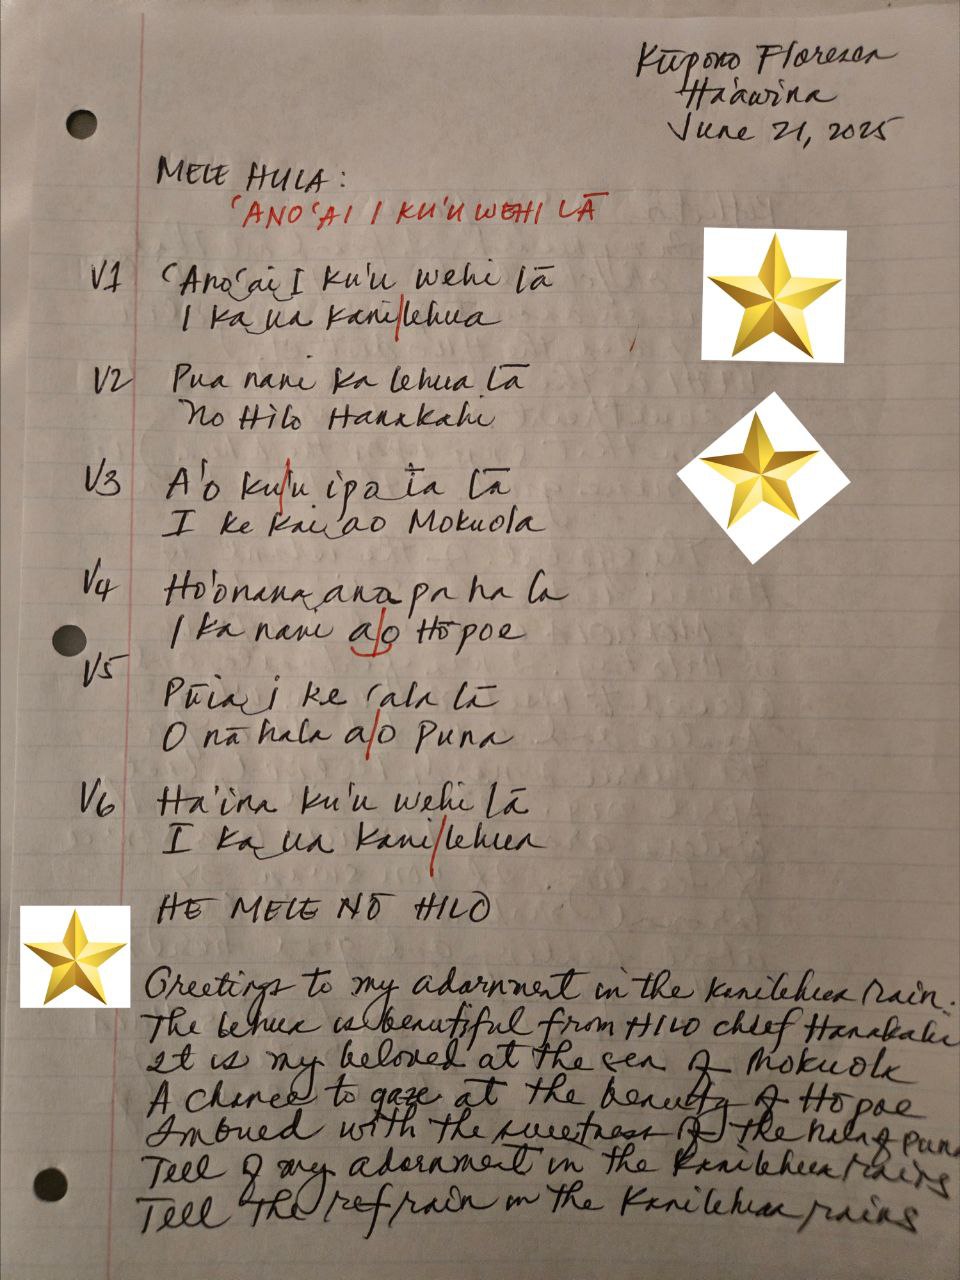 Kūpono Floresca
Ha'awina
June 21, 2025
MELE HULA:
'ANO'AI I KU'U WEHI LĀ
V1 'Ano'ai I ku'u wehi lā
I ka ua kani/lehua
V2 Pua nani ka lehua lā
No Hilo Hanakahi
V3 A'o ku/'u ipo īa lā
I ke kai ao Mokuola
V4 Ho'onana ana pa ha la
I ka nani a/o Hōpoe
V5 Pūia i ke 'ala lā
O nā hala a/o Puna
V6 Ha'ina ku'u wehi lā
I ka ua kani/lehua
HE MELE NŌ HILO
Greetings to my adornment in the Kanilehua rain.
The lehua is beautiful from HILO chief Hanakahi
It is my beloved at the sea of Mokuola
A chance to gaze at the beauty of Hōpoe
Imbued with the sweetness of the hala of Puna
Tell of my adornment in the Kanilehua rains
Tell the refrain in the Kanilehua rains